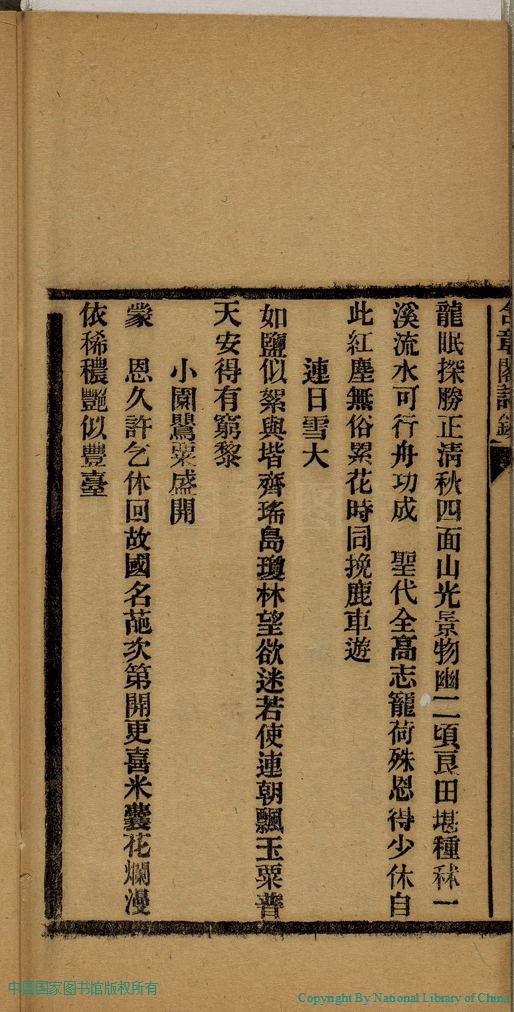 龍眠探勝正清秋四面山光景物幽二頃良田堪種秫一
溪流水可行舟功成　聖代全高志寵荷殊恩得少休自
此紅塵無俗累花時同挽鹿車遊
連日雪大
如鹽似絮與堦齊瑤島瓊林望欲迷若使連朝飄玉粟普
天安得有窮黎
小園鶯粟盛開
蒙　恩久許乞休回故國名葩次第開更喜米囊花爛漫
依稀穠艷似豐臺
中国国家图书馆版权所有
Copyright By National Library of China